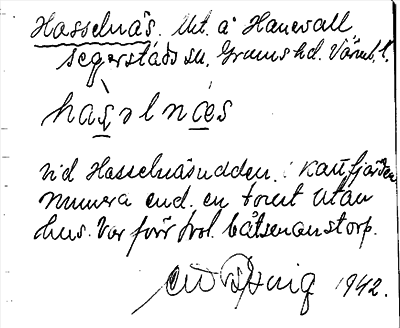 Hasselnäs. Utt. å Hanevall,
Segerstads sn. Grums hd. Värml. l.
hasəlnæs
vid Hasselnäsudden i Kattfjorden
numera end. en tomt utan
hus. Var förr trol. båtsmanstorp.
1942.